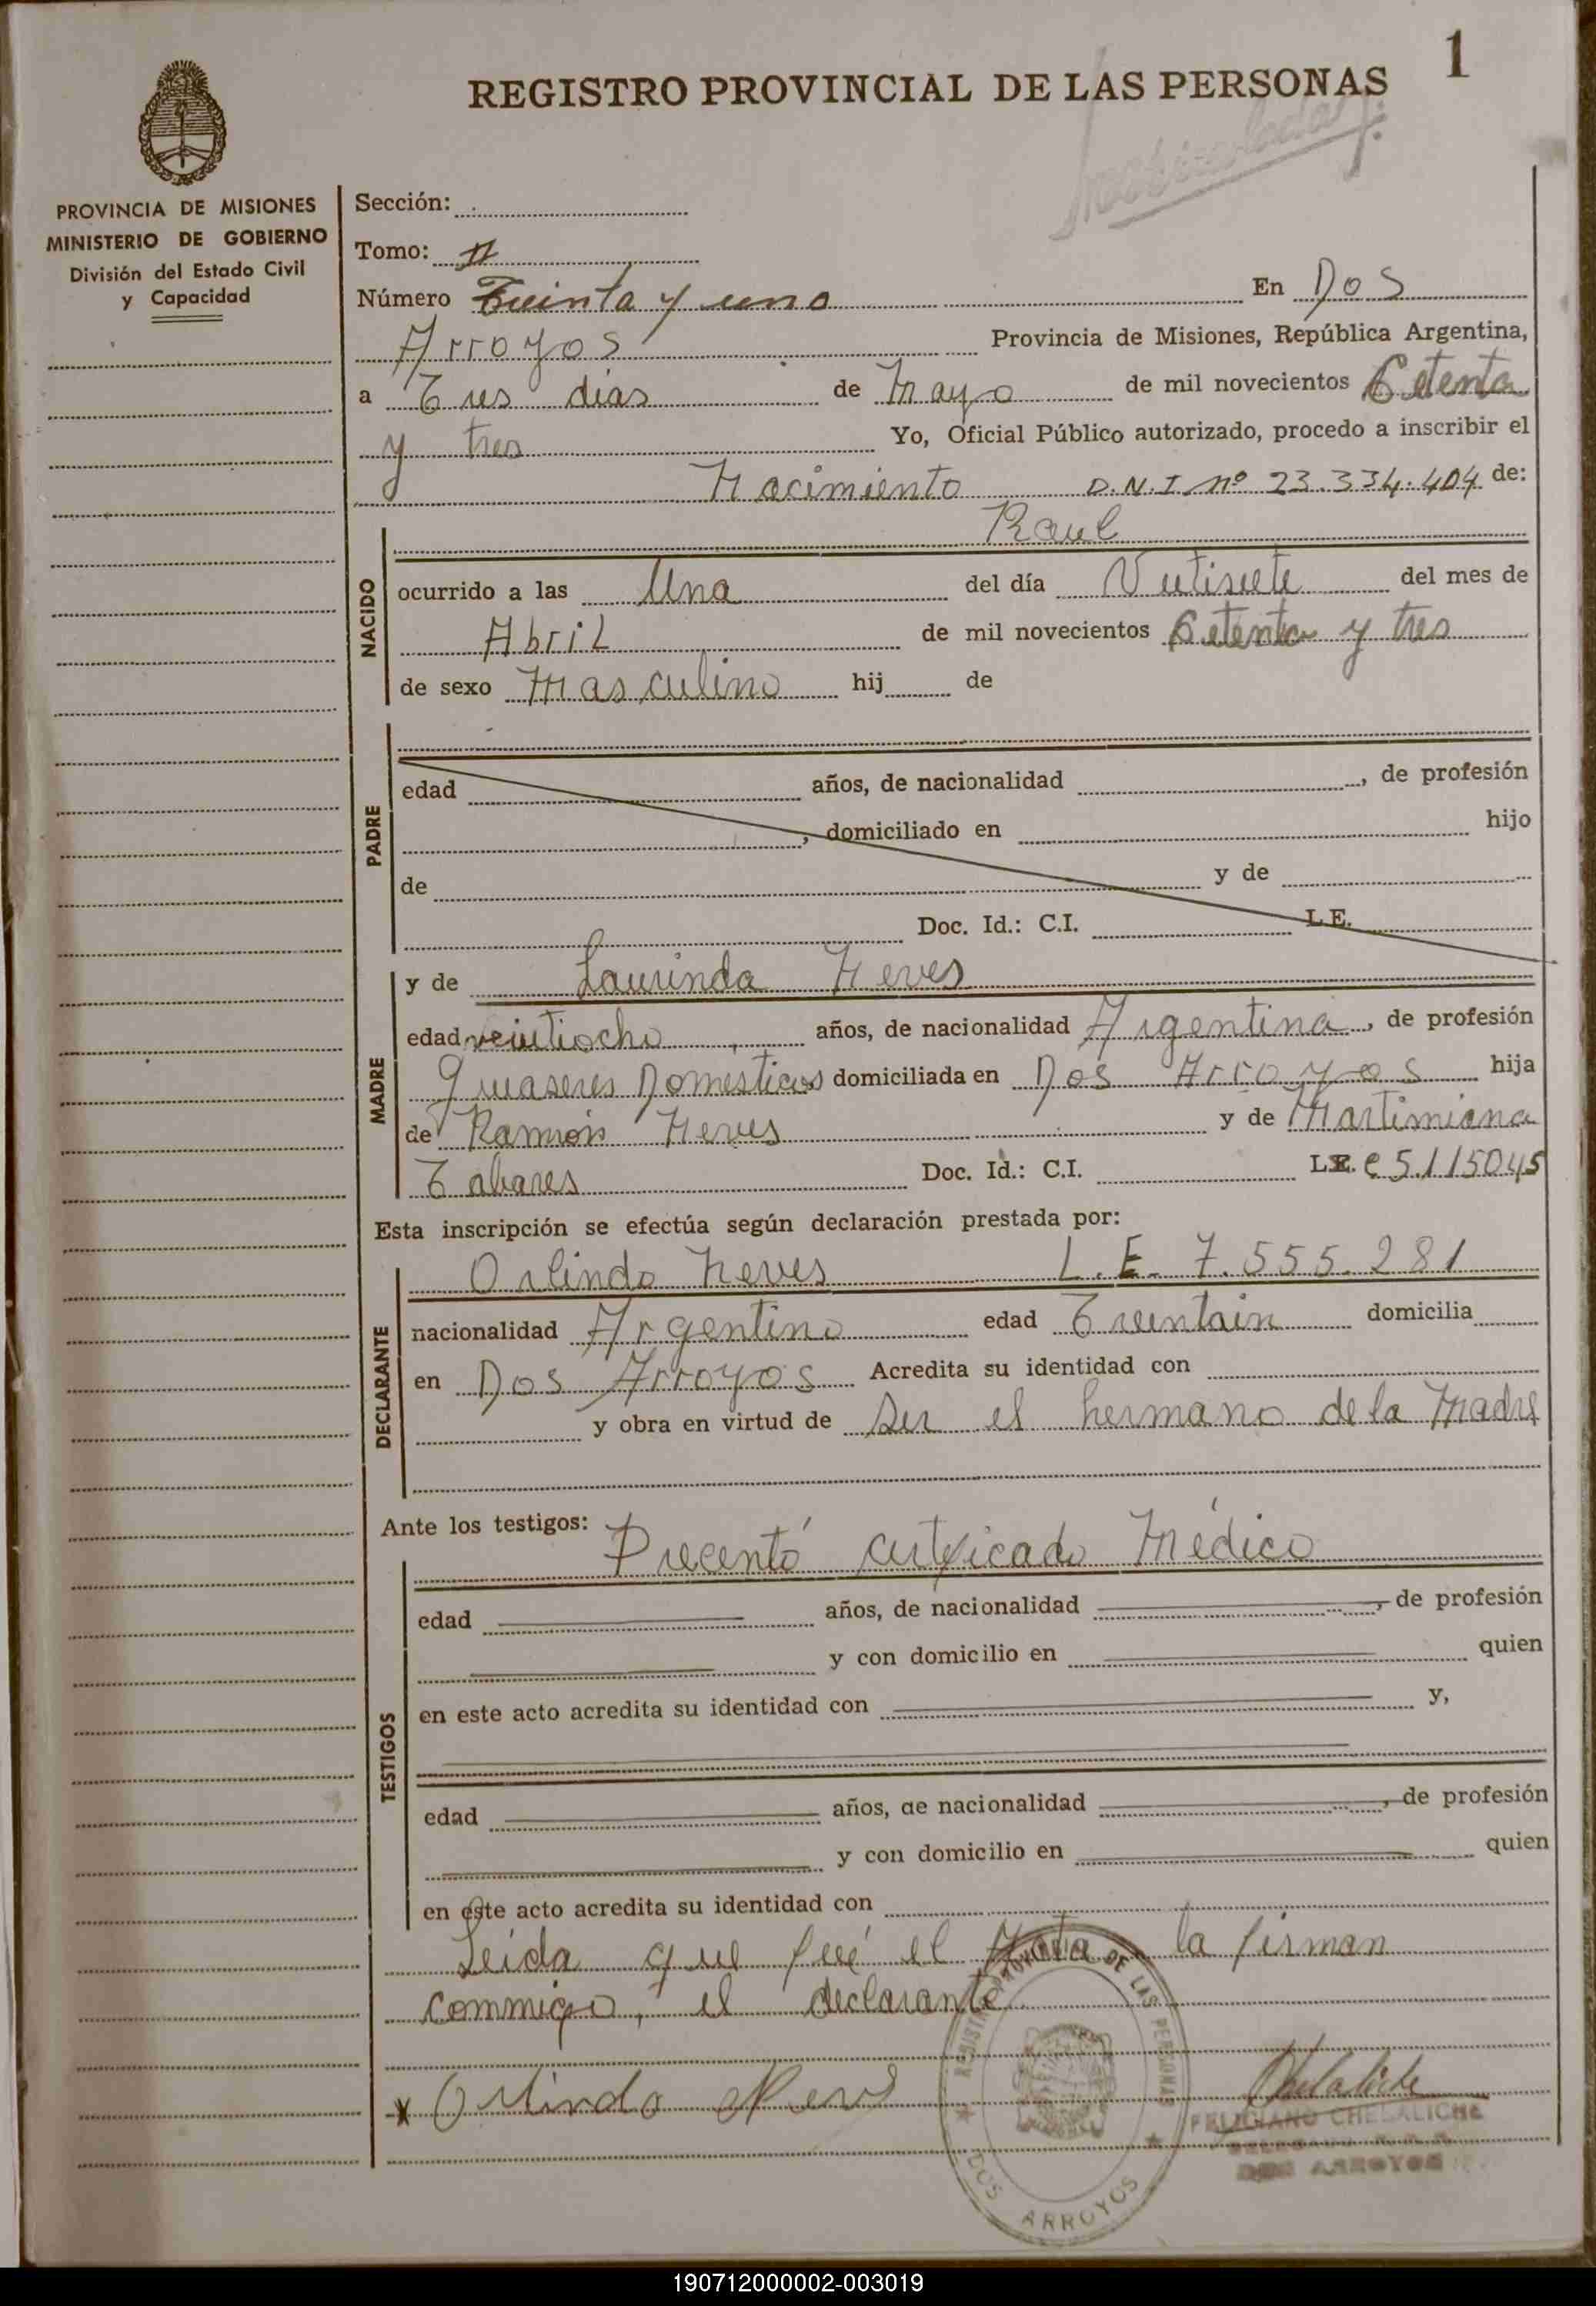 1
REGISTRO PROVINCIAL DE LAS PERSONAS
PROVINCIA DE MISIONES
MINISTERIO DE GOBIERNO
División del Estado Civil
y Capacidad
Sección:
Tomo: II
Número Treinta y uno En Dos
Arroyos Provincia de Misiones, República Argentina,
a Tres dias de Mayo de mil novecientos Setenta
y tres Yo, Oficial Público autorizado, procedo a inscribir el
Nacimiento D.N.I. nº 23.334.404 de:
NACIDO
Raul
ocurrido a las Una del día Veitisiete del mes de
Abril de mil novecientos Setenta y tres
de sexo Masculino hij de
PADRE
edad años, de nacionalidad , de profesión
, domiciliado en hijo
de y de
Doc. Id.: C.I. L.E.
MADRE
y de Laurinda Neves
edad veintiocho años, de nacionalidad Argentina, de profesión
Quaseres Domesticos domiciliada en Dos Arroyos hija
de Ramón Neves y de Martimiana
Tabares Doc. Id.: C.I. L.C 5.115045
Esta inscripción se efectúa según declaración prestada por:
DECLARANTE
Orlindo Neves L.E. 7.555.281
nacionalidad Argentino edad Treintain domicilia
en Dos Arroyos Acredita su identidad con
y obra en virtud de Ser el hermano de la Madre
Ante los testigos: Precentó certificado Médico
TESTIGOS
edad años, de nacionalidad , de profesión
y con domicilio en quien
en este acto acredita su identidad con y,
edad años, de nacionalidad , de profesión
y con domicilio en quien
en este acto acredita su identidad con
Leida que fué el Acta la firman
commigo, el declarante
Orlindo Neves
REGISTRO PROVINCIAL DE LAS PERSONAS
DOS ARROYOS
FELICIANO CHELALICHE
DOS ARROYOS
190712000002-003019